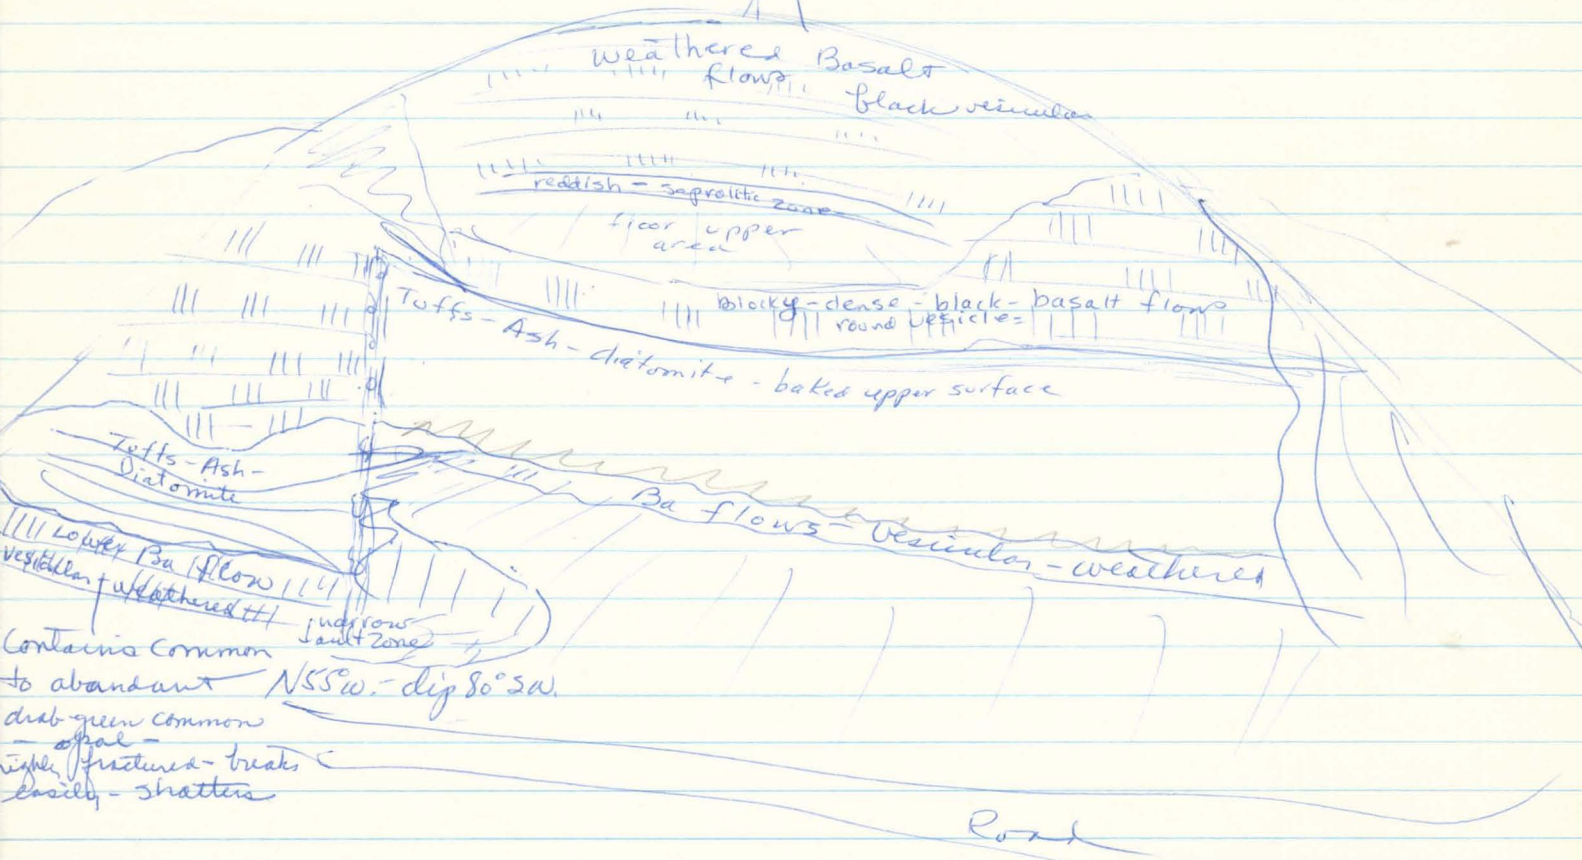 weathered Basalt
flows
black vesicular
reddish - saprolitic zone
floor upper
area
Blocky-dense-black-basalt flows
round vesicles
Tuffs-Ash-diatomite-baked upper surface
Tuffs-Ash-
Diatomite
Ba flows-vesicular-weathered
Lower Ba flow
vesicular + weathered
narrow
fault zone
N55°W.-dip 80° SW.
Contains common
to abandant
drab-green common
- opal -
highly fractured-breaks
easily-shatters
Road